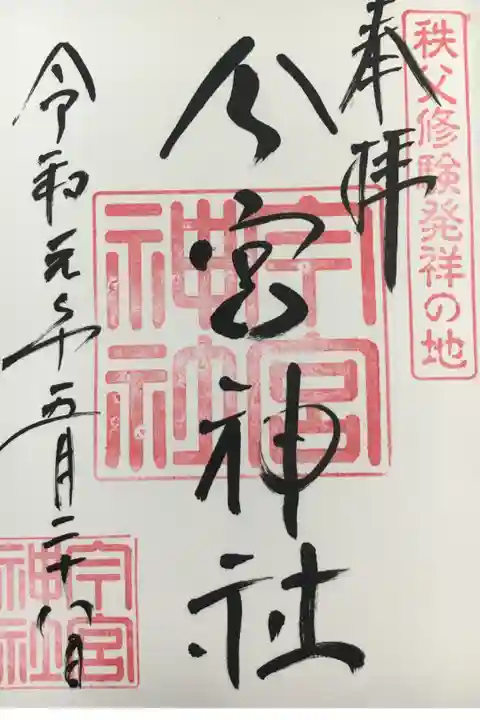 秩父修験発祥の地
奉拝
今宮神社
今宮神社
令和元年五月二十八日
今宮神社